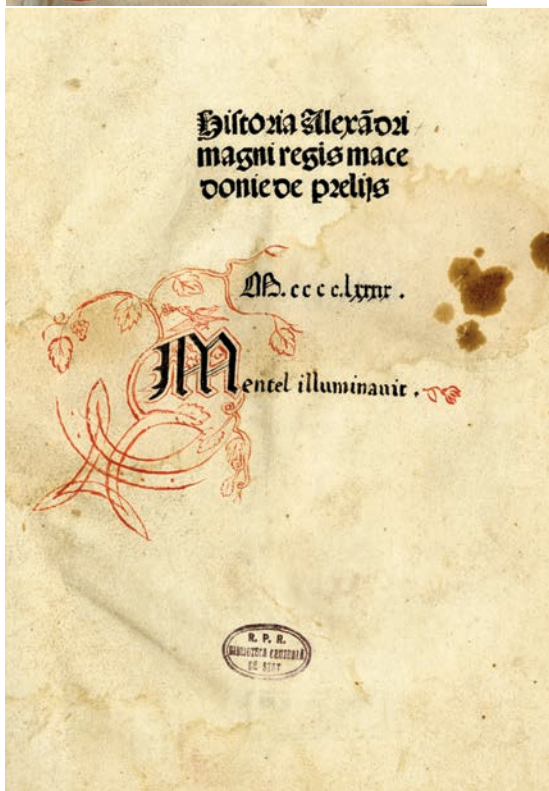 Historia Alexãdri
magni regis mace
donie de prelijs
M. c c c c.
Mentel illuminavit .
R. P. R.
BIBLIOTECA CENTRALĂ
DE STAT